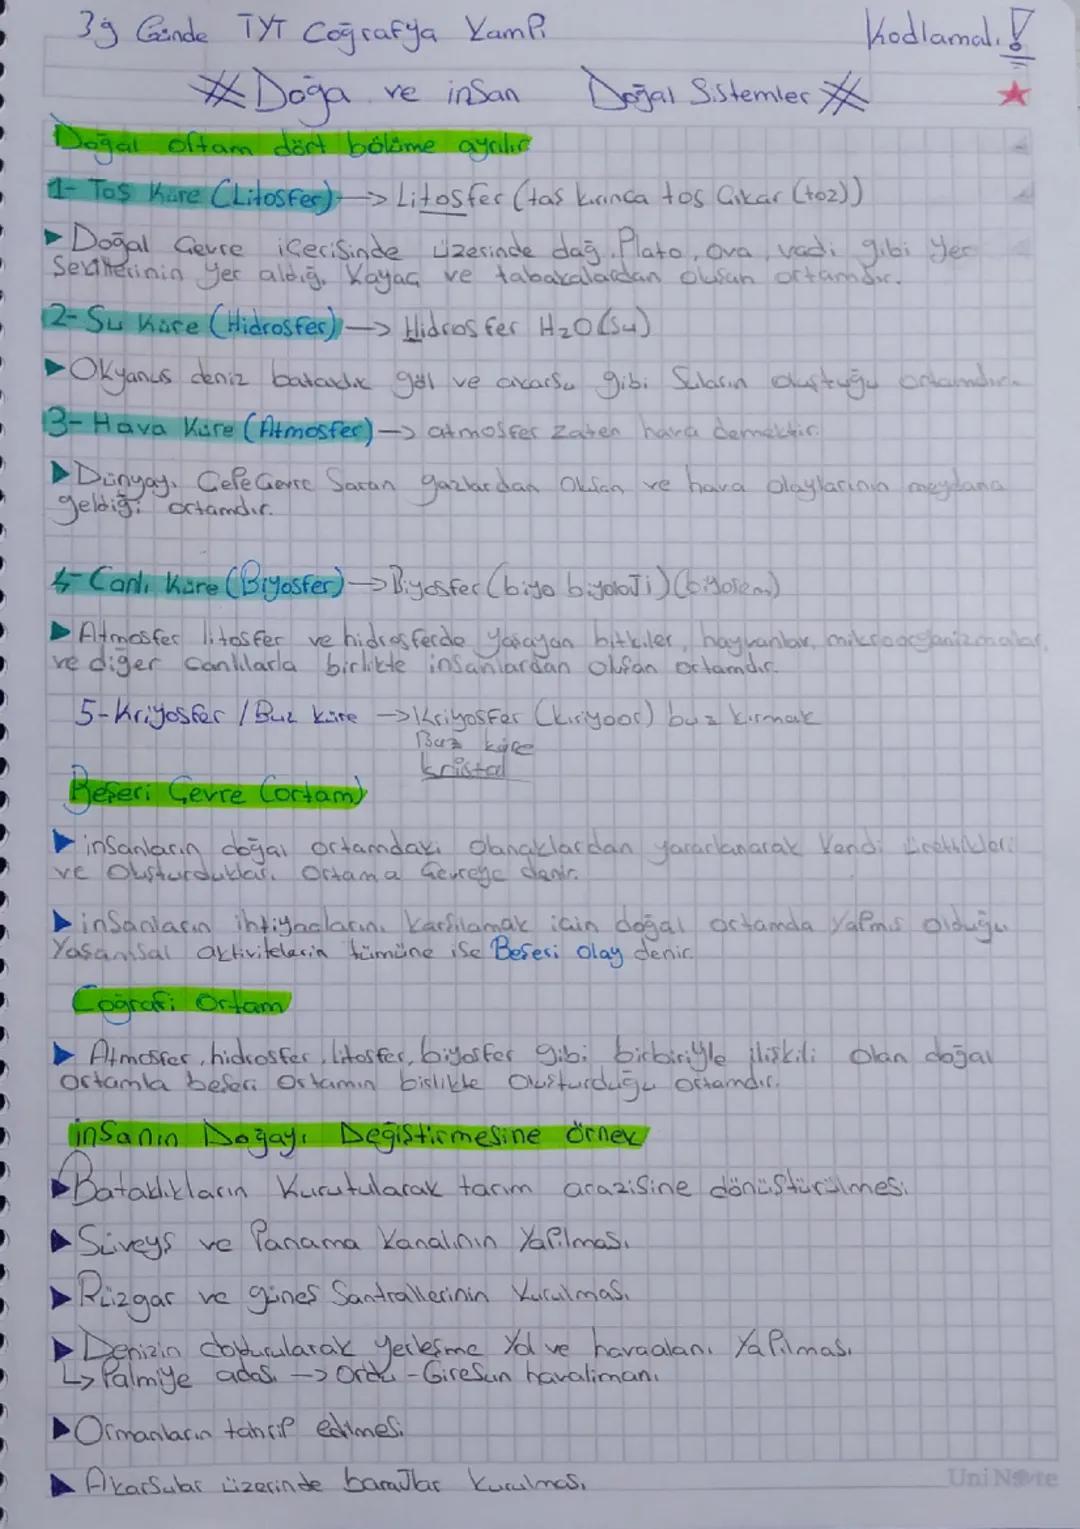 39 Günde TYT Coğrafya Kampı
Kodlamalı!
# Doğa ve insan Doğal Sistemler #
Doğal oftam dört bölüme ayrılır
1- Taş Küre (Litosfer) -> Litosfer (taş kırınca tos Çıkar (toz))
Doğal Çevre içerisinde üzerinde dağ, Plato, ova, vadi gibi Yer
Şekillerinin Yer aldığı, Kayaç ve tabakalardan oluşan ortamdır.
2- Su Küre (Hidrosfer) -> Hidrosfer H2O (su)
Okyanus deniz bataklık göl ve akarsu gibi Suların oluştuğu ortamdır.
3- Hava Küre (Atmosfer) -> atmosfer zaten hava demektir.
Dünyayı Çepeçevre Saran gazlardan Oluşan ve hava olaylarının meydana
geldiği ortamdır.
4- Canlı Küre (Biyosfer) -> Biyosfer (biyo biyoloji)
Atmosfer litosfer ve hidrosferde yaşayan bitkiler, hayvanlar, mikroorganizmalar,
ve diğer canlılarla birlikte insanlardan oluşan ortamdır.
5- Kriyosfer / Buz küre -> Kriyosfer (kıriyoor) buz kırmak
Buz küre
kristal
Beşeri Çevre (ortam)
insanların doğal ortamdaki olanaklardan yararlanarak Kendi ürettikleri
ve Oluşturdukları Ortama Çevreye denir.
insanların ihtiyaçlarını karşılamak için doğal ortamda Yapmış olduğu
Yaşamsal aktivitelerin tümüne ise Beşeri olay denir.
Coğrafi Ortam
Atmosfer, hidrosfer, litosfer, biyosfer gibi birbiriyle ilişkili olan doğal
ortamla beşeri ortamın birlikte Oluşturduğu ortamdır.
insanın Doğayı Değiştirmesine örnek
Bataklıkların Kurutularak tarım arazisine dönüştürülmesi
Süveyş ve Panama Kanalının Yapılması
Rüzgar ve güneş Santrallerinin Kurulması
Denizin doldurularak yerleşme Yol ve havaalanı Yapılması
↳ Palmiye adası -> Ordu - Giresun havalimanı
Ormanların tahrip edilmesi
Akarsular üzerinde barajlar Kurulması
UniNote